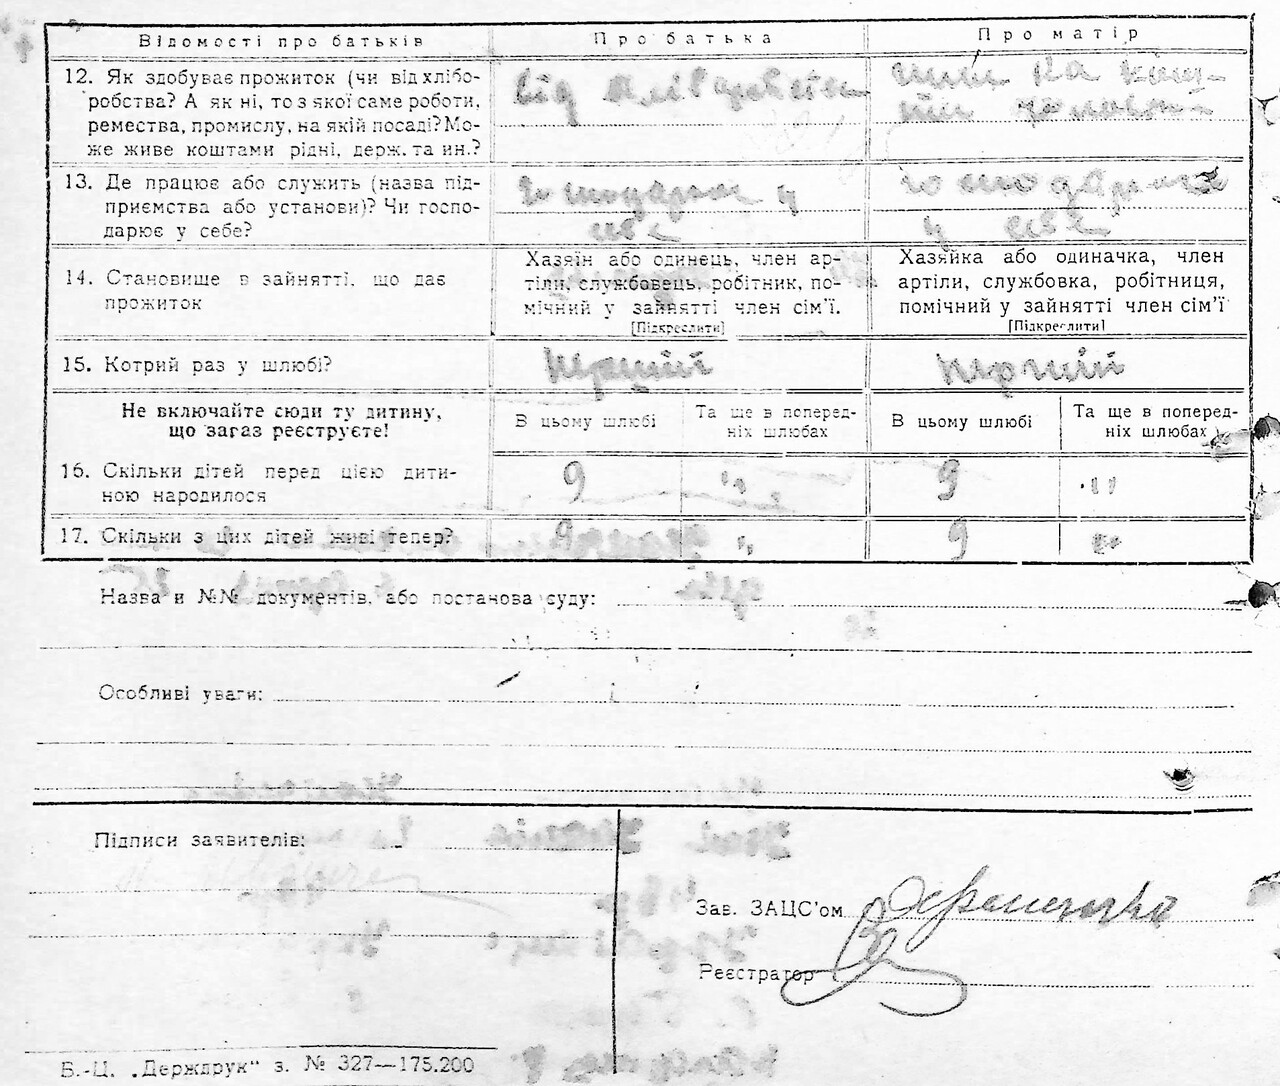 Відомості про батьків
Про батька
Про матір
12. Як здобуває прожиток (чи від хлібо-
робства? А як ні, то з якої саме роботи,
ремества, промислу, на якій посаді? Мо-
же живе коштами рідні, держ. та ин.?
від хліборобства
живе на кош-
ти чоловіка
13. Де працює або служить (назва під-
приємства або установи)? Чи госпо-
дарює у себе?
господарює у
себе
господарює
у себе
14. Становище в зайнятті, що дає
прожиток
Хазяїн або одинець, член ар-
тіли, службовець, робітник, по-
мічний у зайнятті член сім'ї.
[Підкреслити]
Хазяйка або одиначка, член
артіли, службовка, робітниця,
помічний у зайнятті член сім'ї
[Підкреслити]
15. Котрий раз у шлюбі?
перший
перший
Не включайте сюди ту дитину,
що загаз реєструєте!
В цьому шлюбі
Та ще в поперед-
ніх шлюбах
В цьому шлюбі
Та ще в поперед-
ніх шлюбах
16. Скільки дітей перед цією дити-
ною народилося
9
"
9
"
17. Скільки з цих дітей живі тепер?
9
"
9
"
Назва и №№ документів, або постанова суду:
Особливі уваги:
Підписи заявителів:
Зав. ЗАЦС'ом
Реєстратор
Б.-Ц. „Держдрук" з. № 327—175.200